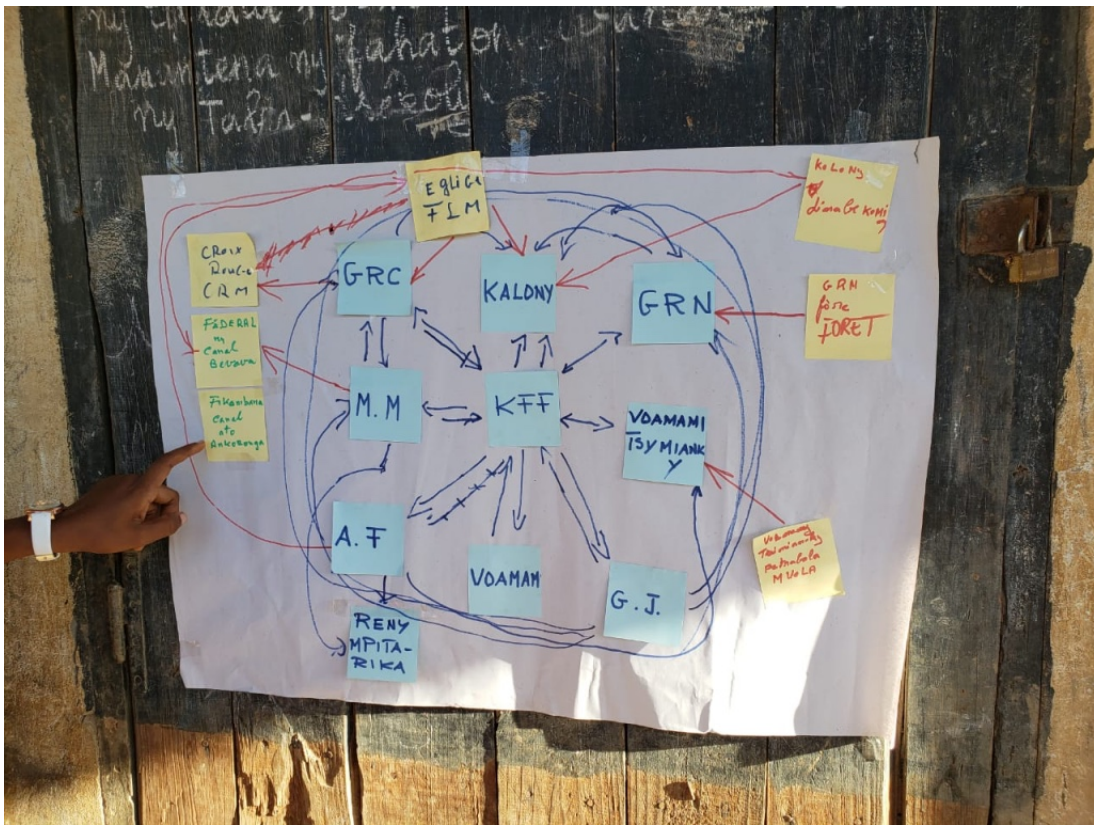 Manantena ny fahaton
ny
Eglise
FLM
KOLONY
dimabe KOMI
CROIX
Rouge
CRM
GRC
KALONY
GRN
GRN
FORET
FEDERAL
ny
Canal
Bevava
M.M
KFF
VOAMAMI
TSYMIANK
Y
Fikambana
Canal
ato
Ankoronga
A.F
VOAMAM
G.J.
MVOLA
RENY
MPITA-
RIKA